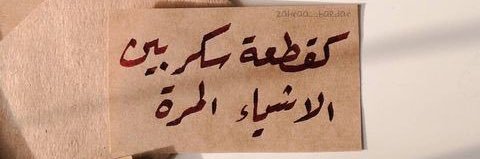 كقطعة سكر بين
الاشياء المرة